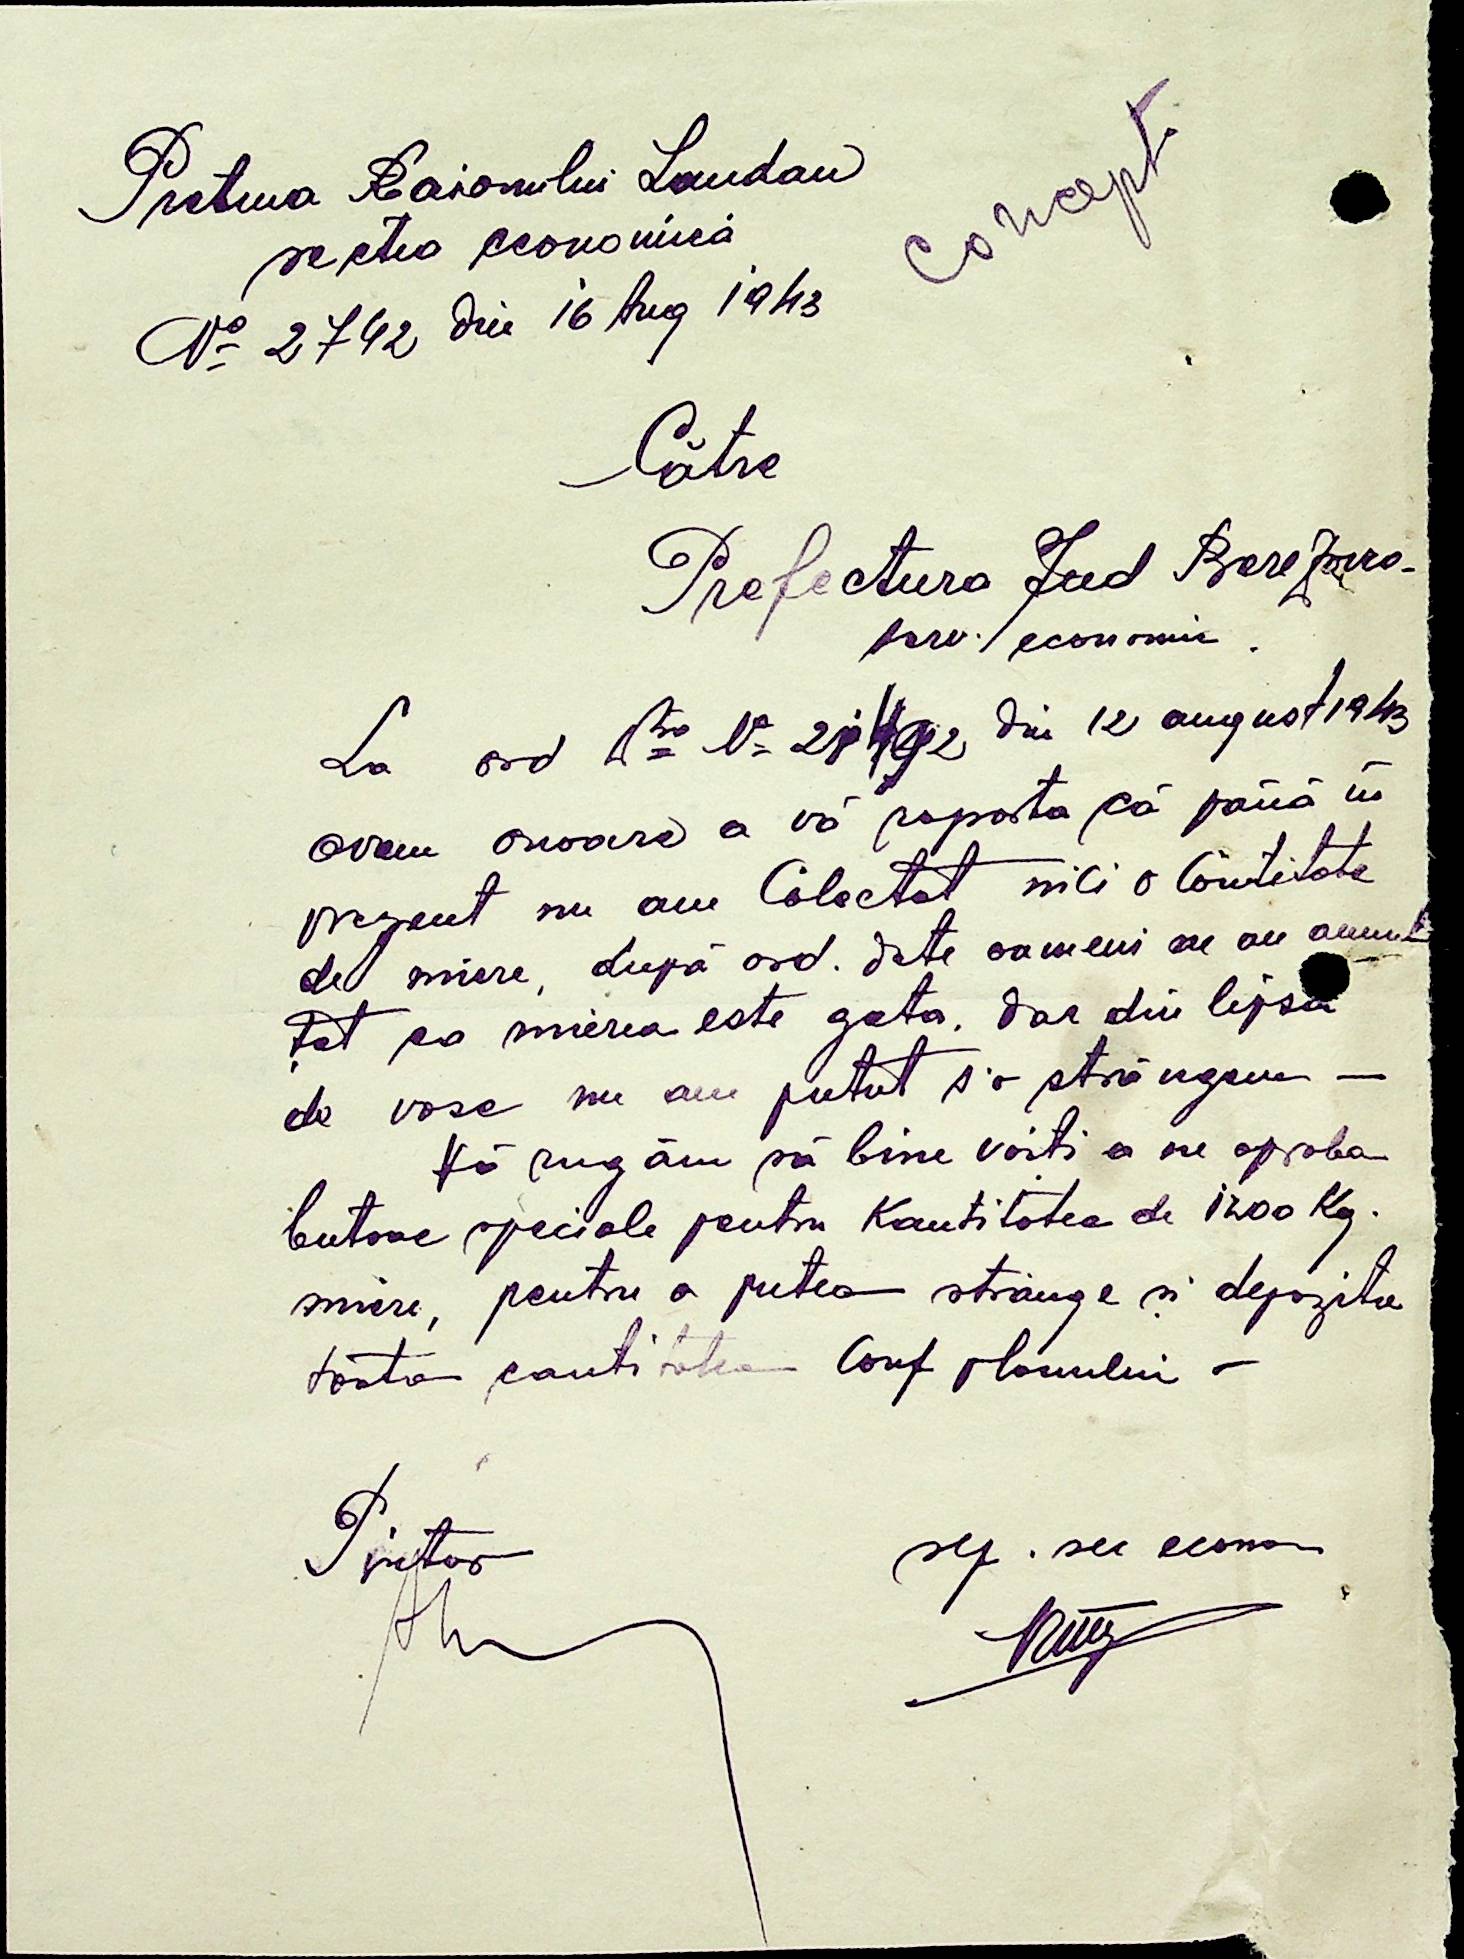 concept.
Pretura Raionului Landau
sectia economică
No 2742 din 16 Aug 1943
Către
Prefectura Jud Berezovca-
serv. economic.
La ord No din 12 august 1943
avem onoare a vă raporta că până în
prezent nu am Colectat nici o Cantitate
de miere, după ord. date oameni ne au anunt
țat ca mierea este gata, dar din lipsa
de vase nu am putut s'o strângem —
Vă rugăm să bine voiti a ne aproba
butoae speciale pentru Kantitatea de 1200 Kg.
miere, pentru a putea strânge și depozita
toata cantitatea Conf planului —
Pretor
sef. sec econom